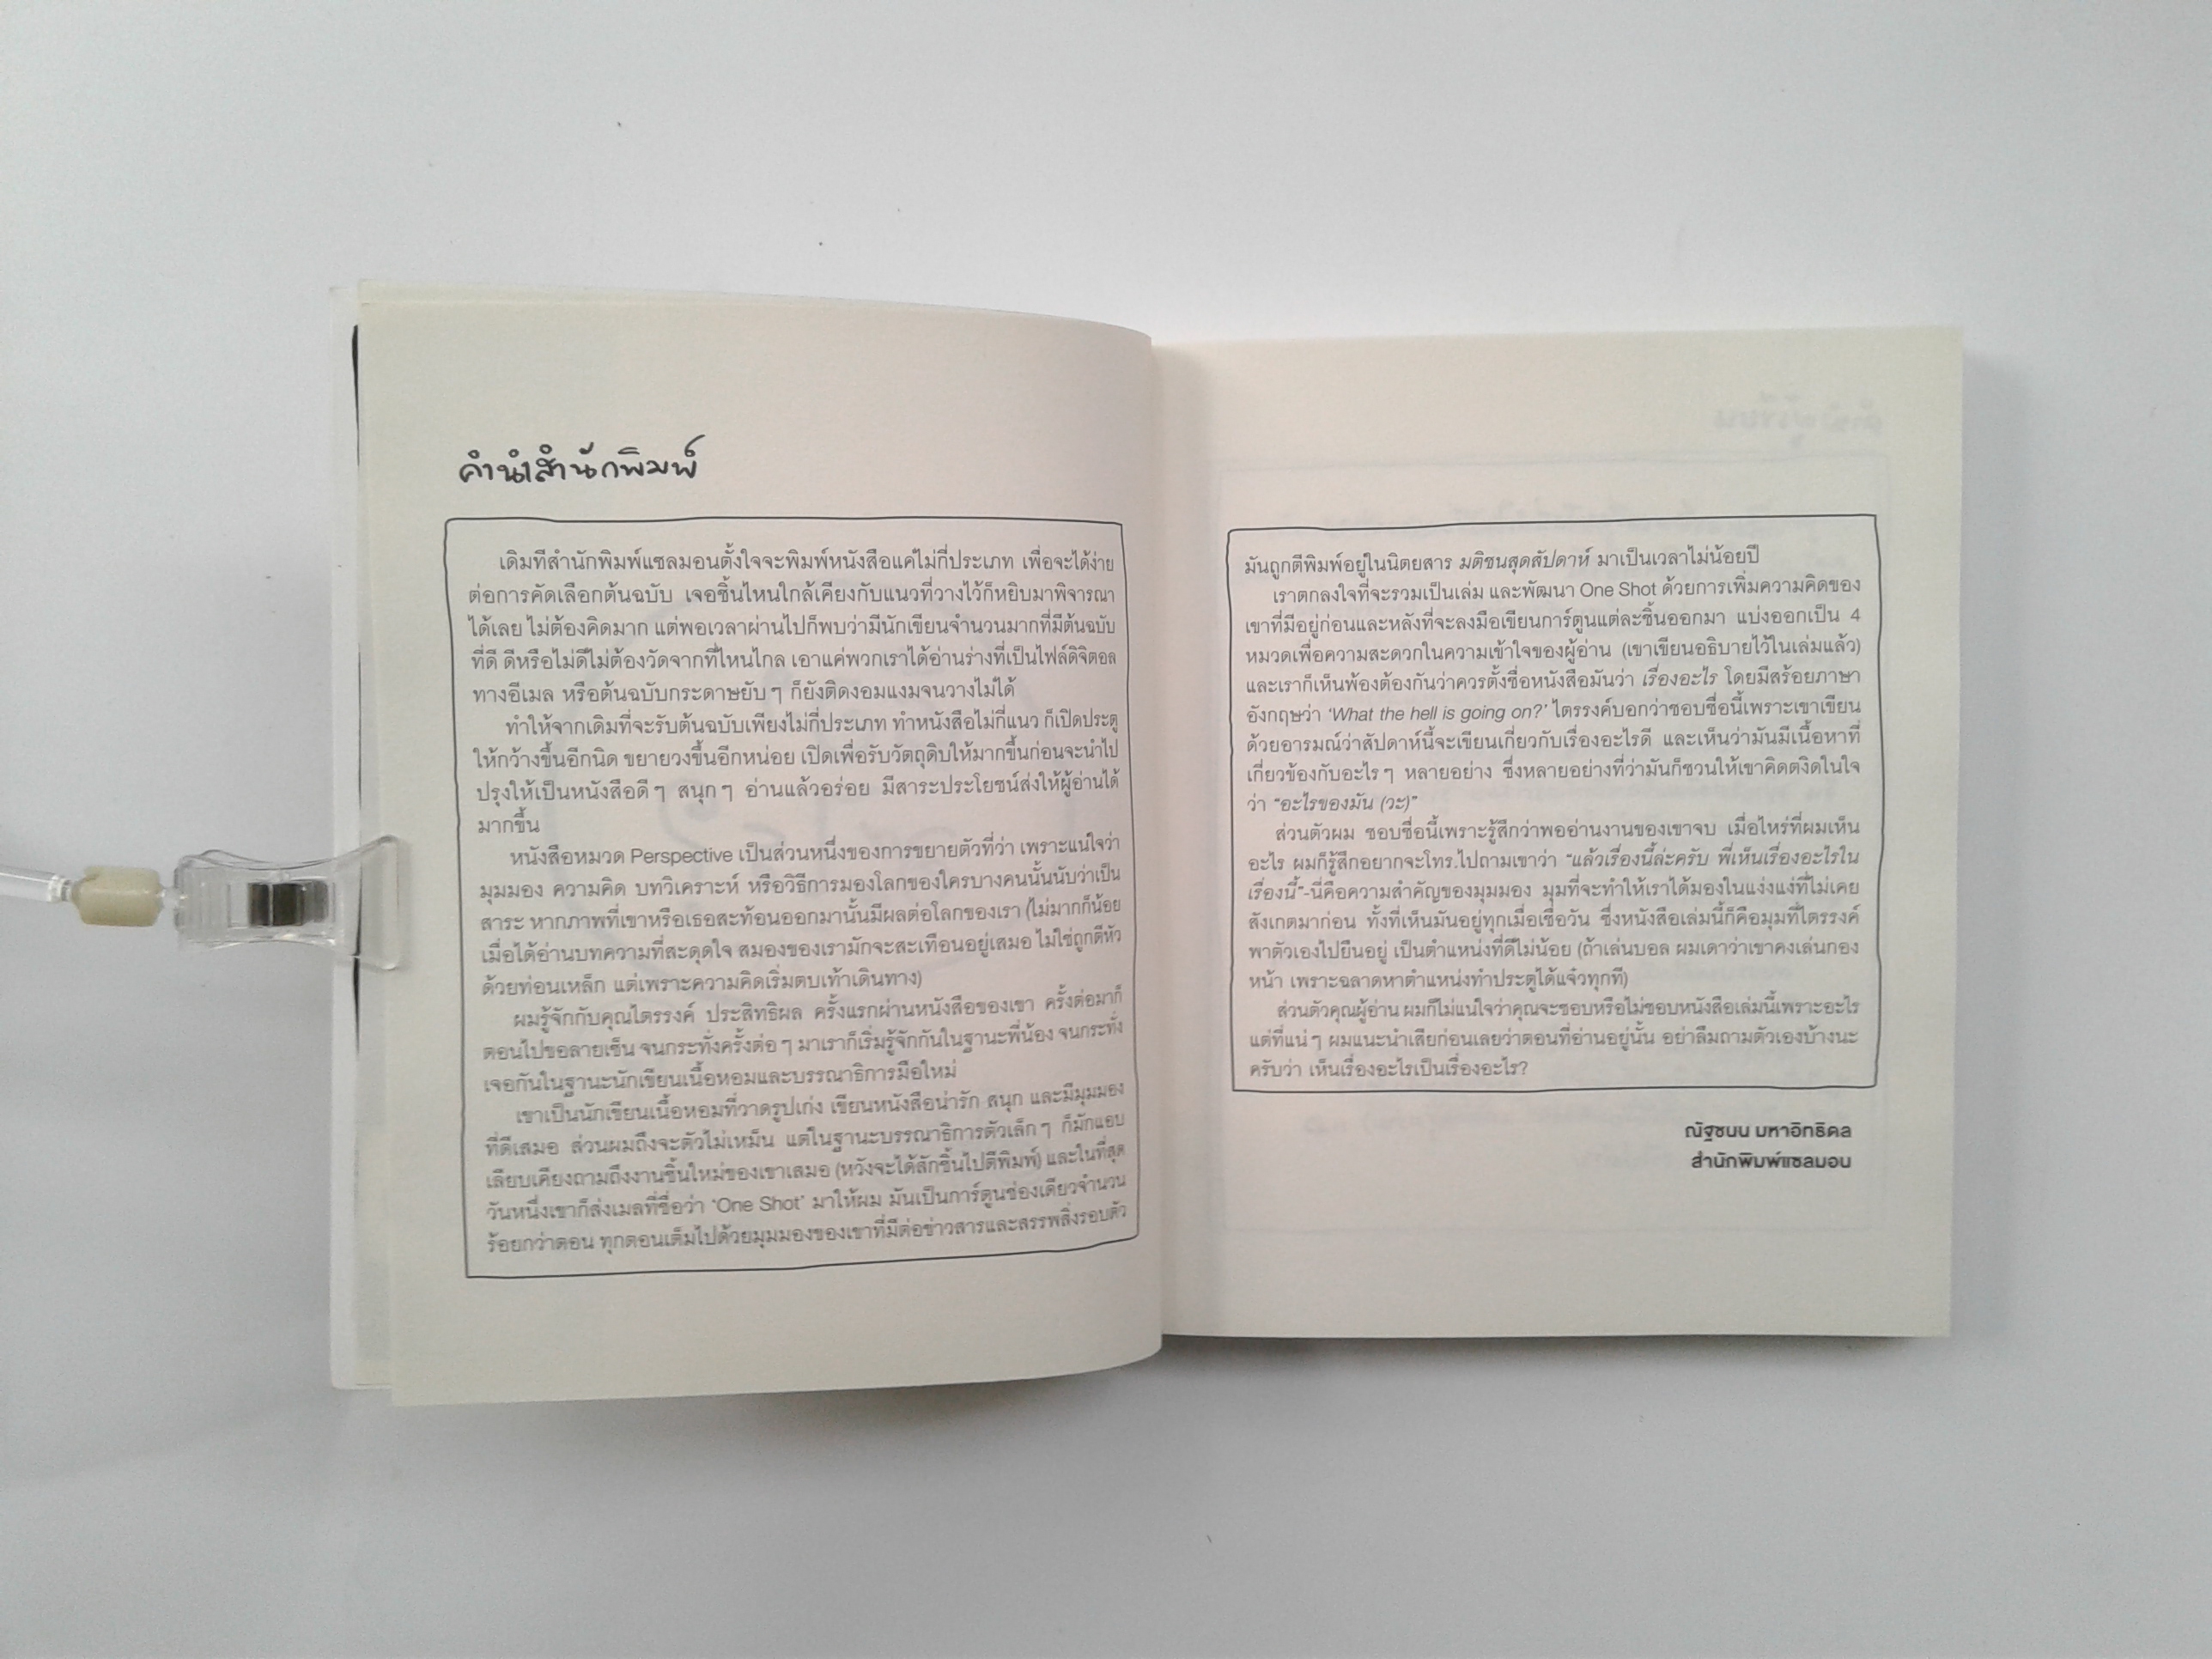 คำนำสำนักพิมพ์
เดิมทีสำนักพิมพ์แซลมอนตั้งใจจะพิมพ์หนังสือแค่ไม่กี่ประเภท เพื่อจะได้ง่าย
ต่อการคัดเลือกต้นฉบับ เจอชิ้นไหนใกล้เคียงกับแนวที่วางไว้ก็หยิบมาพิจารณา
ได้เลย ไม่ต้องคิดมาก แต่พอเวลาผ่านไปก็พบว่ามีนักเขียนจำนวนมากที่มีต้นฉบับ
ที่ดี ดีหรือไม่ดีไม่ต้องวัดจากที่ไหนไกล เอาแค่พวกเราได้อ่านร่างที่เป็นไฟล์ดิจิตอล
ทางอีเมล หรือต้นฉบับกระดาษยับๆ ก็ยังติดงอมแงมจนวางไม่ได้
ทำให้จากเดิมที่จะรับต้นฉบับเพียงไม่กี่ประเภท ทำหนังสือไม่กี่แนว ก็เปิดประตู
ให้กว้างขึ้นอีกนิด ขยายวงขึ้นอีกหน่อย เปิดเพื่อรับวัตถุดิบให้มากขึ้นก่อนจะนำไป
ปรุงให้เป็นหนังสือดีๆ สนุกๆ อ่านแล้วอร่อย มีสาระประโยชน์ส่งให้ผู้อ่านได้
มากขึ้น
หนังสือหมวด Perspective เป็นส่วนหนึ่งของการขยายตัวที่ว่า เพราะแน่ใจว่า
มุมมอง ความคิด บทวิเคราะห์ หรือวิธีการมองโลกของใครบางคนนั้นนับว่าเป็น
สาระ หากภาพที่เขาหรือเธอสะท้อนออกมานั้นมีผลต่อโลกของเรา (ไม่มากก็น้อย
เมื่อได้อ่านบทความที่สะดุดใจ สมองของเรามักจะสะเทือนอยู่เสมอ ไม่ใช่ถูกตีหัว
ด้วยท่อนเหล็ก แต่เพราะความคิดเริ่มตบเท้าเดินทาง)
ผมรู้จักกับคุณไตรรงค์ ประสิทธิผล ครั้งแรกผ่านหนังสือของเขา ครั้งต่อมาก็
ตอนไปขอลายเซ็น จนกระทั่งครั้งต่อๆ มาเราก็เริ่มรู้จักกันในฐานะพี่น้อง จนกระทั่ง
เจอกันในฐานะนักเขียนเนื้อหอมและบรรณาธิการมือใหม่
เขาเป็นนักเขียนเนื้อหอมที่วาดรูปเก่ง เขียนหนังสือน่ารัก สนุก และมีมุมมอง
ที่ดีเสมอ ส่วนผมถึงจะตัวไม่เหม็น แต่ในฐานะบรรณาธิการตัวเล็กๆ ก็มักแอบ
เลียบเคียงถามถึงงานชิ้นใหม่ของเขาเสมอ (หวังจะได้สักชิ้นไปตีพิมพ์) และในที่สุด
วันหนึ่งเขาก็ส่งเมลที่ชื่อว่า ‘One Shot’ มาให้ผม มันเป็นการ์ตูนช่องเดียวจำนวน
ร้อยกว่าตอน ทุกตอนเต็มไปด้วยมุมมองของเขาที่มีต่อข่าวสารและสรรพสิ่งรอบตัว
มันถูกตีพิมพ์อยู่ในนิตยสาร มติชนสุดสัปดาห์ มาเป็นเวลาไม่น้อยปี
เราตกลงใจที่จะรวมเป็นเล่ม และพัฒนา One Shot ด้วยการเพิ่มความคิดของ
เขาที่มีอยู่ก่อนและหลังที่จะลงมือเขียนการ์ตูนแต่ละชิ้นออกมา แบ่งออกเป็น 4
หมวดเพื่อความสะดวกในความเข้าใจของผู้อ่าน (เขาเขียนอธิบายไว้ในเล่มแล้ว)
และเราก็เห็นพ้องต้องกันว่าควรตั้งชื่อหนังสือมันว่า เรื่องอะไร โดยมีสร้อยภาษา
อังกฤษว่า ‘What the hell is going on?’ ไตรรงค์บอกว่าชอบชื่อนี้เพราะเขาเขียน
ด้วยอารมณ์ว่าสัปดาห์นี้จะเขียนเกี่ยวกับเรื่องอะไรดี และเห็นว่ามันมีเนื้อหาที่
เกี่ยวข้องกับอะไรๆ หลายอย่าง ซึ่งหลายอย่างที่ว่ามันก็ชวนให้เขาคิดตงิดในใจ
ว่า “อะไรของมัน (วะ)”
ส่วนตัวผม ชอบชื่อนี้เพราะรู้สึกว่าพออ่านงานของเขาจบ เมื่อไหร่ที่ผมเห็น
อะไร ผมก็รู้สึกอยากจะโทร.ไปถามเขาว่า “แล้วเรื่องนี้ล่ะครับ พี่เห็นเรื่องอะไรใน
เรื่องนี้”-นี่คือความสำคัญของมุมมอง มุมที่จะทำให้เราได้มองในแง่งแง่ที่ไม่เคย
สังเกตมาก่อน ทั้งที่เห็นมันอยู่ทุกเมื่อเชื่อวัน ซึ่งหนังสือเล่มนี้ก็คือมุมที่ไตรรงค์
พาตัวเองไปยืนอยู่ เป็นตำแหน่งที่ดีไม่น้อย (ถ้าเล่นบอล ผมเดาว่าเขาคงเล่นกอง
หน้า เพราะฉลาดหาตำแหน่งทำประตูได้แจ๋วทุกที)
ส่วนตัวคุณผู้อ่าน ผมก็ไม่แน่ใจว่าคุณจะชอบหรือไม่ชอบหนังสือเล่มนี้เพราะอะไร
แต่ที่แน่ๆ ผมแนะนำเสียก่อนเลยว่าตอนที่อ่านอยู่นั้น อย่าลืมถามตัวเองบ้างนะ
ครับว่า เห็นเรื่องอะไรเป็นเรื่องอะไร?
ณัฐชนน มหาอิทธิดล
สำนักพิมพ์แซลมอน